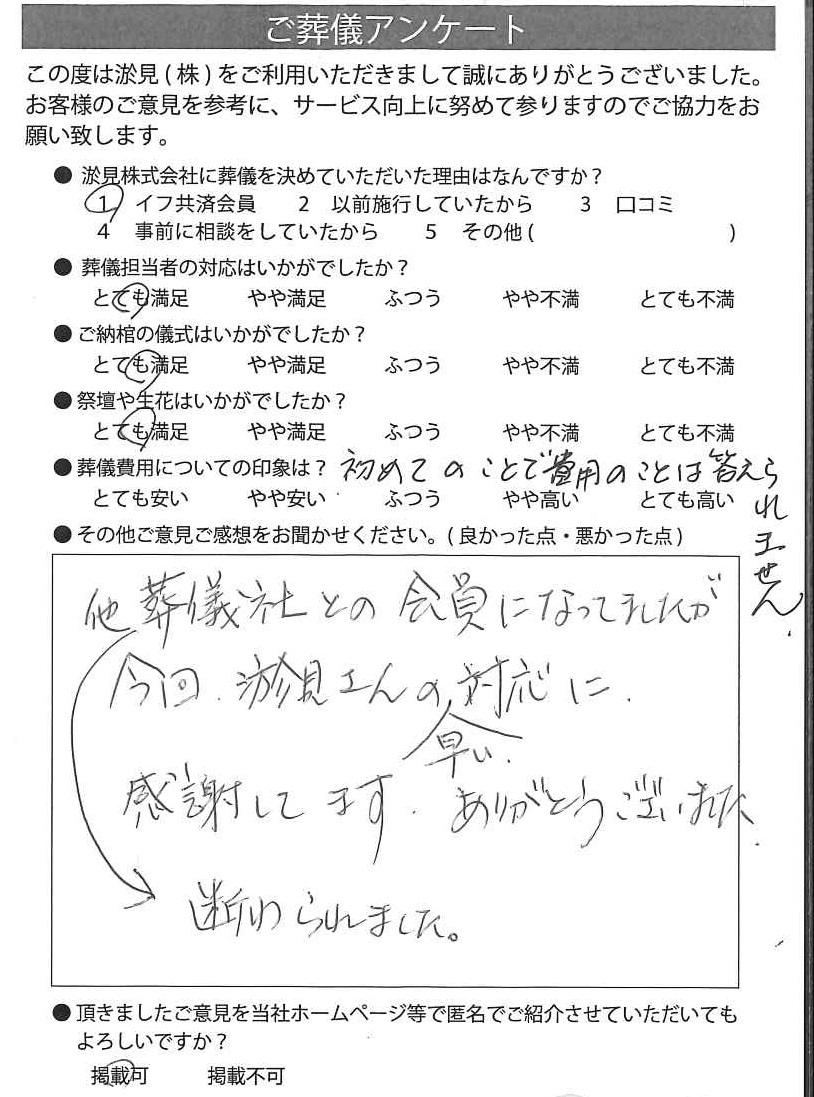 ご葬儀アンケート
この度は淤見(株)をご利用いただきまして誠にありがとうございました。
お客様のご意見を参考に、サービス向上に努めて参りますのでご協力をお
願い致します。
● 淤見株式会社に葬儀を決めていただいた理由はなんですか？
1 イフ共済会員 2 以前施行していたから 3 口コミ
4 事前に相談をしていたから 5 その他( )
● 葬儀担当者の対応はいかがでしたか？
とても満足 やや満足 ふつう やや不満 とても不満
● ご納棺の儀式はいかがでしたか？
とても満足 やや満足 ふつう やや不満 とても不満
● 祭壇や生花はいかがでしたか？
とても満足 やや満足 ふつう やや不満 とても不満
● 葬儀費用についての印象は？ 初めてのことで費用のことは答えら
れません.
とても安い やや安い ふつう やや高い とても高い
● その他ご意見ご感想をお聞かせください。(良かった点・悪かった点)
他葬儀社との会員になってましたが
今回、淤見さんの対応に、
早い、
感謝してます. ありがとうございました.
断わられました。
● 頂きましたご意見を当社ホームページ等で匿名でご紹介させていただいても
よろしいですか？
掲載可 掲載不可